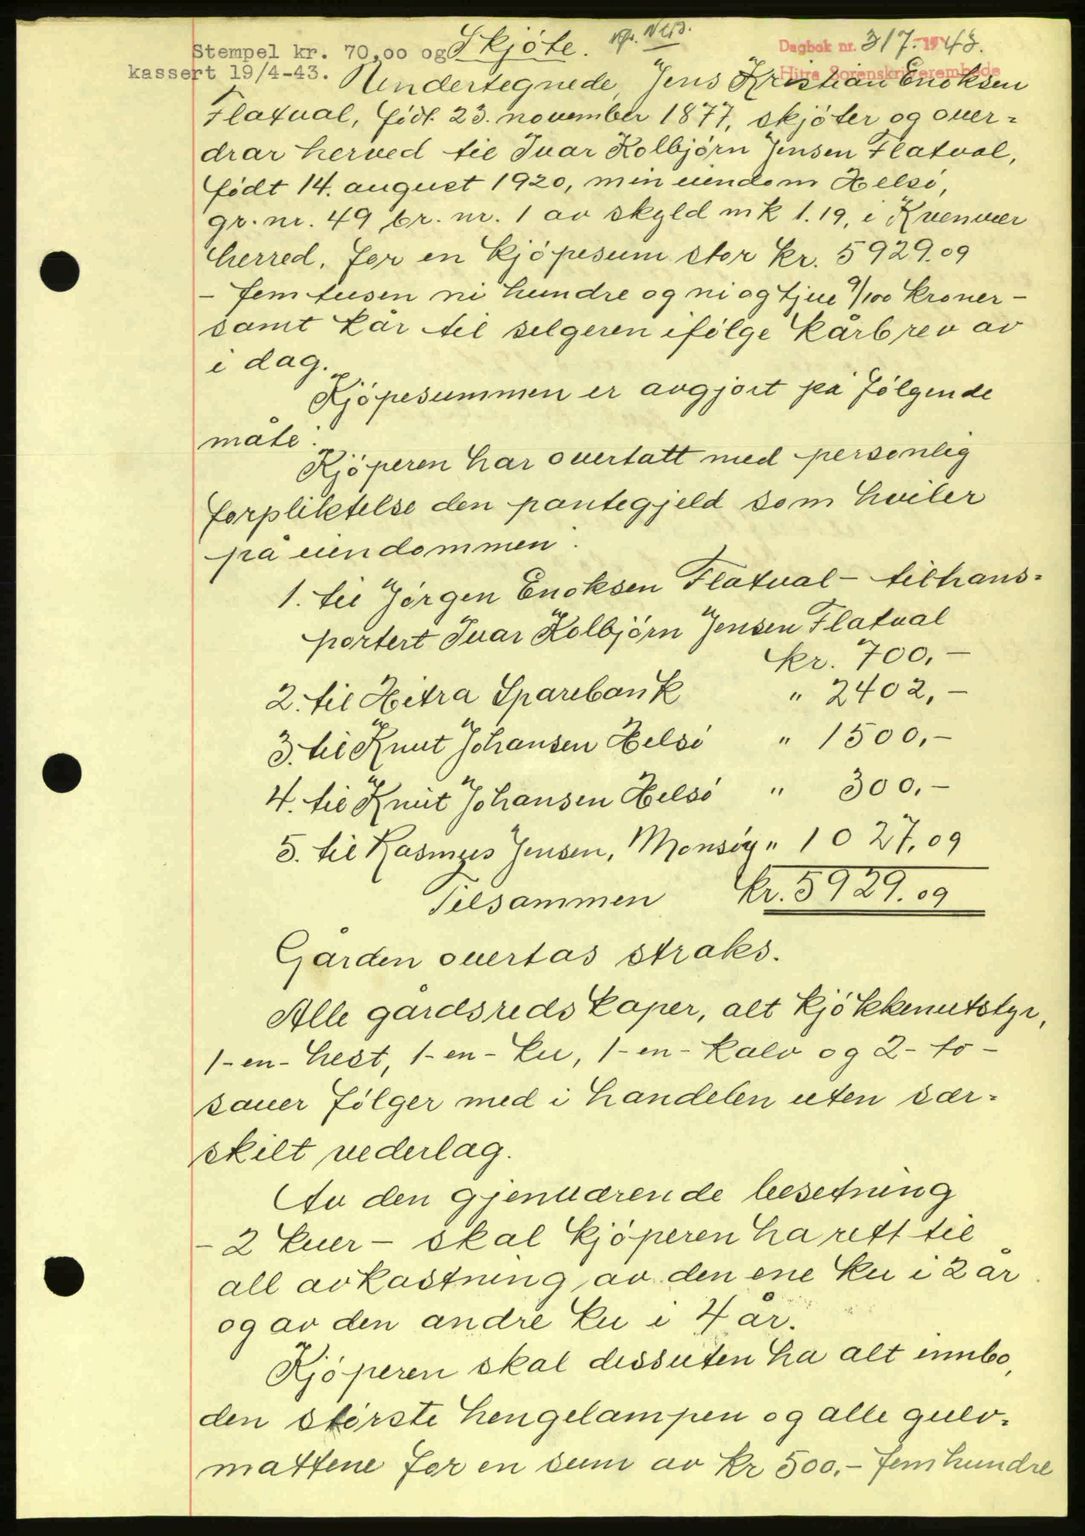 Stempel kr. 70,00 og Skjöte.
Dagbok nr. 317.-1943.
kassert 19/4-43.
Hitra Sorenskriverembede
Undertegnede, Jens Kristian Enoksen
Flatval, född 23. november 1877, skjöter og over=
drar herved til Ivar Kolbjörn Jensen Flatval,
födt 14. august 1920, min eiendom Helsö,
gr. nr. 49, br. nr. 1 av skyld mk 1.19, i Kvenvær
herred, for en kjöpesum stor kr. 5929.09
- fem tusen ni hundre og ni og tjue 9/100 kroner -
samt kår til selgeren ifölge kårbrev av
i dag.
Kjöpesummen er avgjort på fölgende
måte:
Kjöperen har overtatt med personlig
forpliktelse den pantegjeld som hviler
på eiendommen:
1. til Jörgen Enoksen Flatval - tilhans=
portert Ivar Kolbjörn Jensen Flatval
kr. 700,-
2. til Hitra Sparebank " 2402,-
3. til Knut Johansen Helsö " 1500,-
4. til Knut Johansen Helsö " 300,-
5. til Rasmus Jensen, Monsöy " 1027,09
Tilsammen kr. 5929.09
Gården overtas straks.
Alle gårdsredskaper, alt kjökkenutstyr,
1-en- hest, 1-en- ku, 1-en- kalv og 2- to -
sauer fölger med i handelen uten sær=
skilt vederlag.
Av den gjenværende besetning
- 2 kuer - skal kjöperen ha rett til
all avkastning av den ene ku i 2 år
og av den andre ku i 4 år.
Kjöperen skal dessuten ha alt innbo,
den störste hengelampen og alle gulv=
mattene for en sum av kr 500.- fem hundre